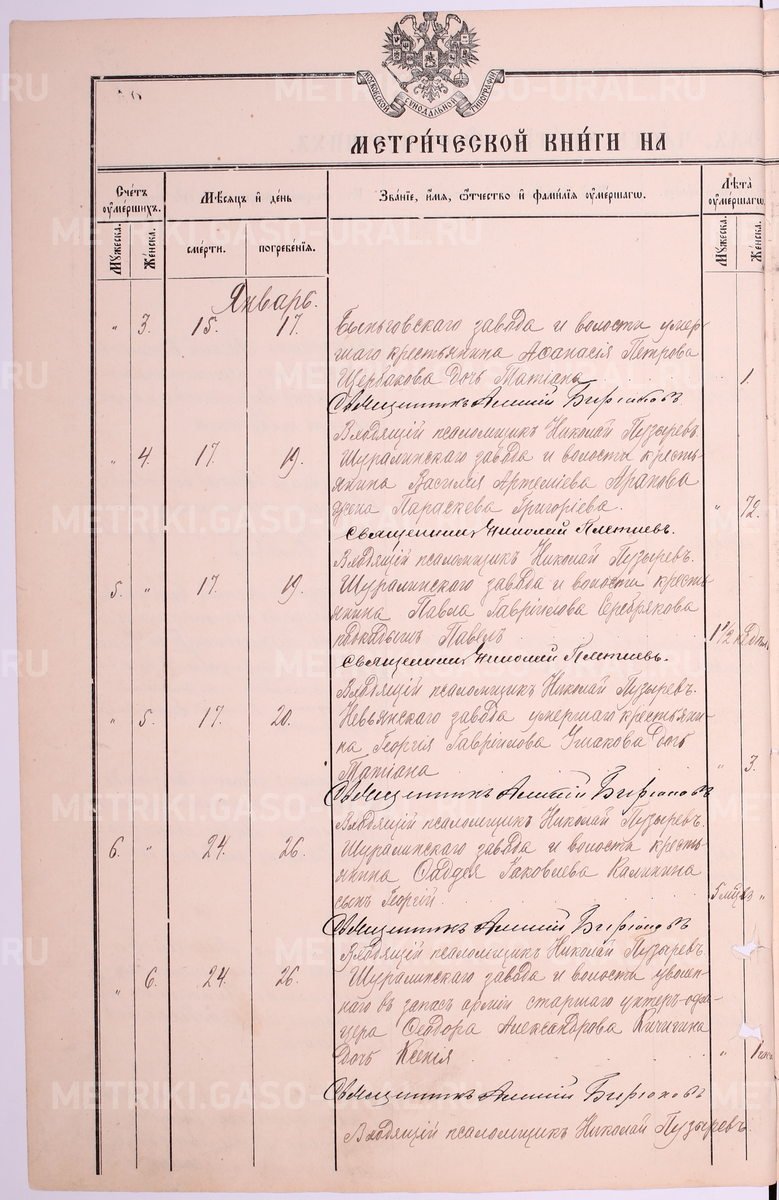 МОСКОВСКОЙ СѴНОДАЛЬНОЙ ТИПОГРАФІИ
МЕТРИ́ЧЕСКОЙ КНИ́ГИ НА
Счетъ оу҆ме́ршихъ.
Мꙋжеска.
Же́нска.
Мѣ́сяцъ и҆ де́нь
сме́рти.
погребе́нїѧ.
Зва́нїе, и҆́мѧ, ѻ҆́тчество и҆ фами́лїѧ оу҆ме́ршагѡ.
Лѣ́та оу҆ме́ршагѡ
Мꙋжеска.
Же́нска.
Январь.
" 3. 15. 17. Быньговскаго завода и волости умер-
шаго крестьянина Аѳанасія Петрова
Щербакова дочь Татіана " 1.
Священникъ Алексій Бирюковъ
Владящій псаломщикъ Николай Пузыревъ.
" 4. 17. 19. Шуралинскаго завода и волости кресть-
янина Василія Артеміева Арапова
жена Параскева Григоріева. " 72.
Священникъ Николай Плетневъ.
Владящій псаломщикъ Николай Пузыревъ.
5. " 17. 19. Шуралинскаго завода и волости кресть-
янина Павла Гавріилова Серебрякова
подкидышъ Павелъ 1 1/2
Священникъ Николай Плетневъ.
Владящій псаломщикъ Николай Пузыревъ.
" 5. 17. 20. Невьянскаго завода умершаго крестьяни-
на Георгія Гавріилова Ушакова дочь
Татіана " 3.
Священникъ Алексій Бирюковъ
Владящій псаломщикъ Николай Пузыревъ.
6. " 24. 26. Шуралинскаго завода и волости кресть-
янина Ѳаддея Іаковлева Калинина
сынъ Георгій. 5 мцев "
Священникъ Алексій Бирюковъ
Владящій псаломщикъ Николай Пузыревъ.
" 6. 24. 26. Шуралинскаго завода и волости уволен-
наго въ запасъ арміи старшаго унтеръ-офи-
цера Ѳеодора Александрова Кичигина
дочь Ксенія " 1
Священникъ Алексій Бирюковъ
Владящій псаломщикъ Николай Пузыревъ.
METRIKI.GASO-URAL.RU